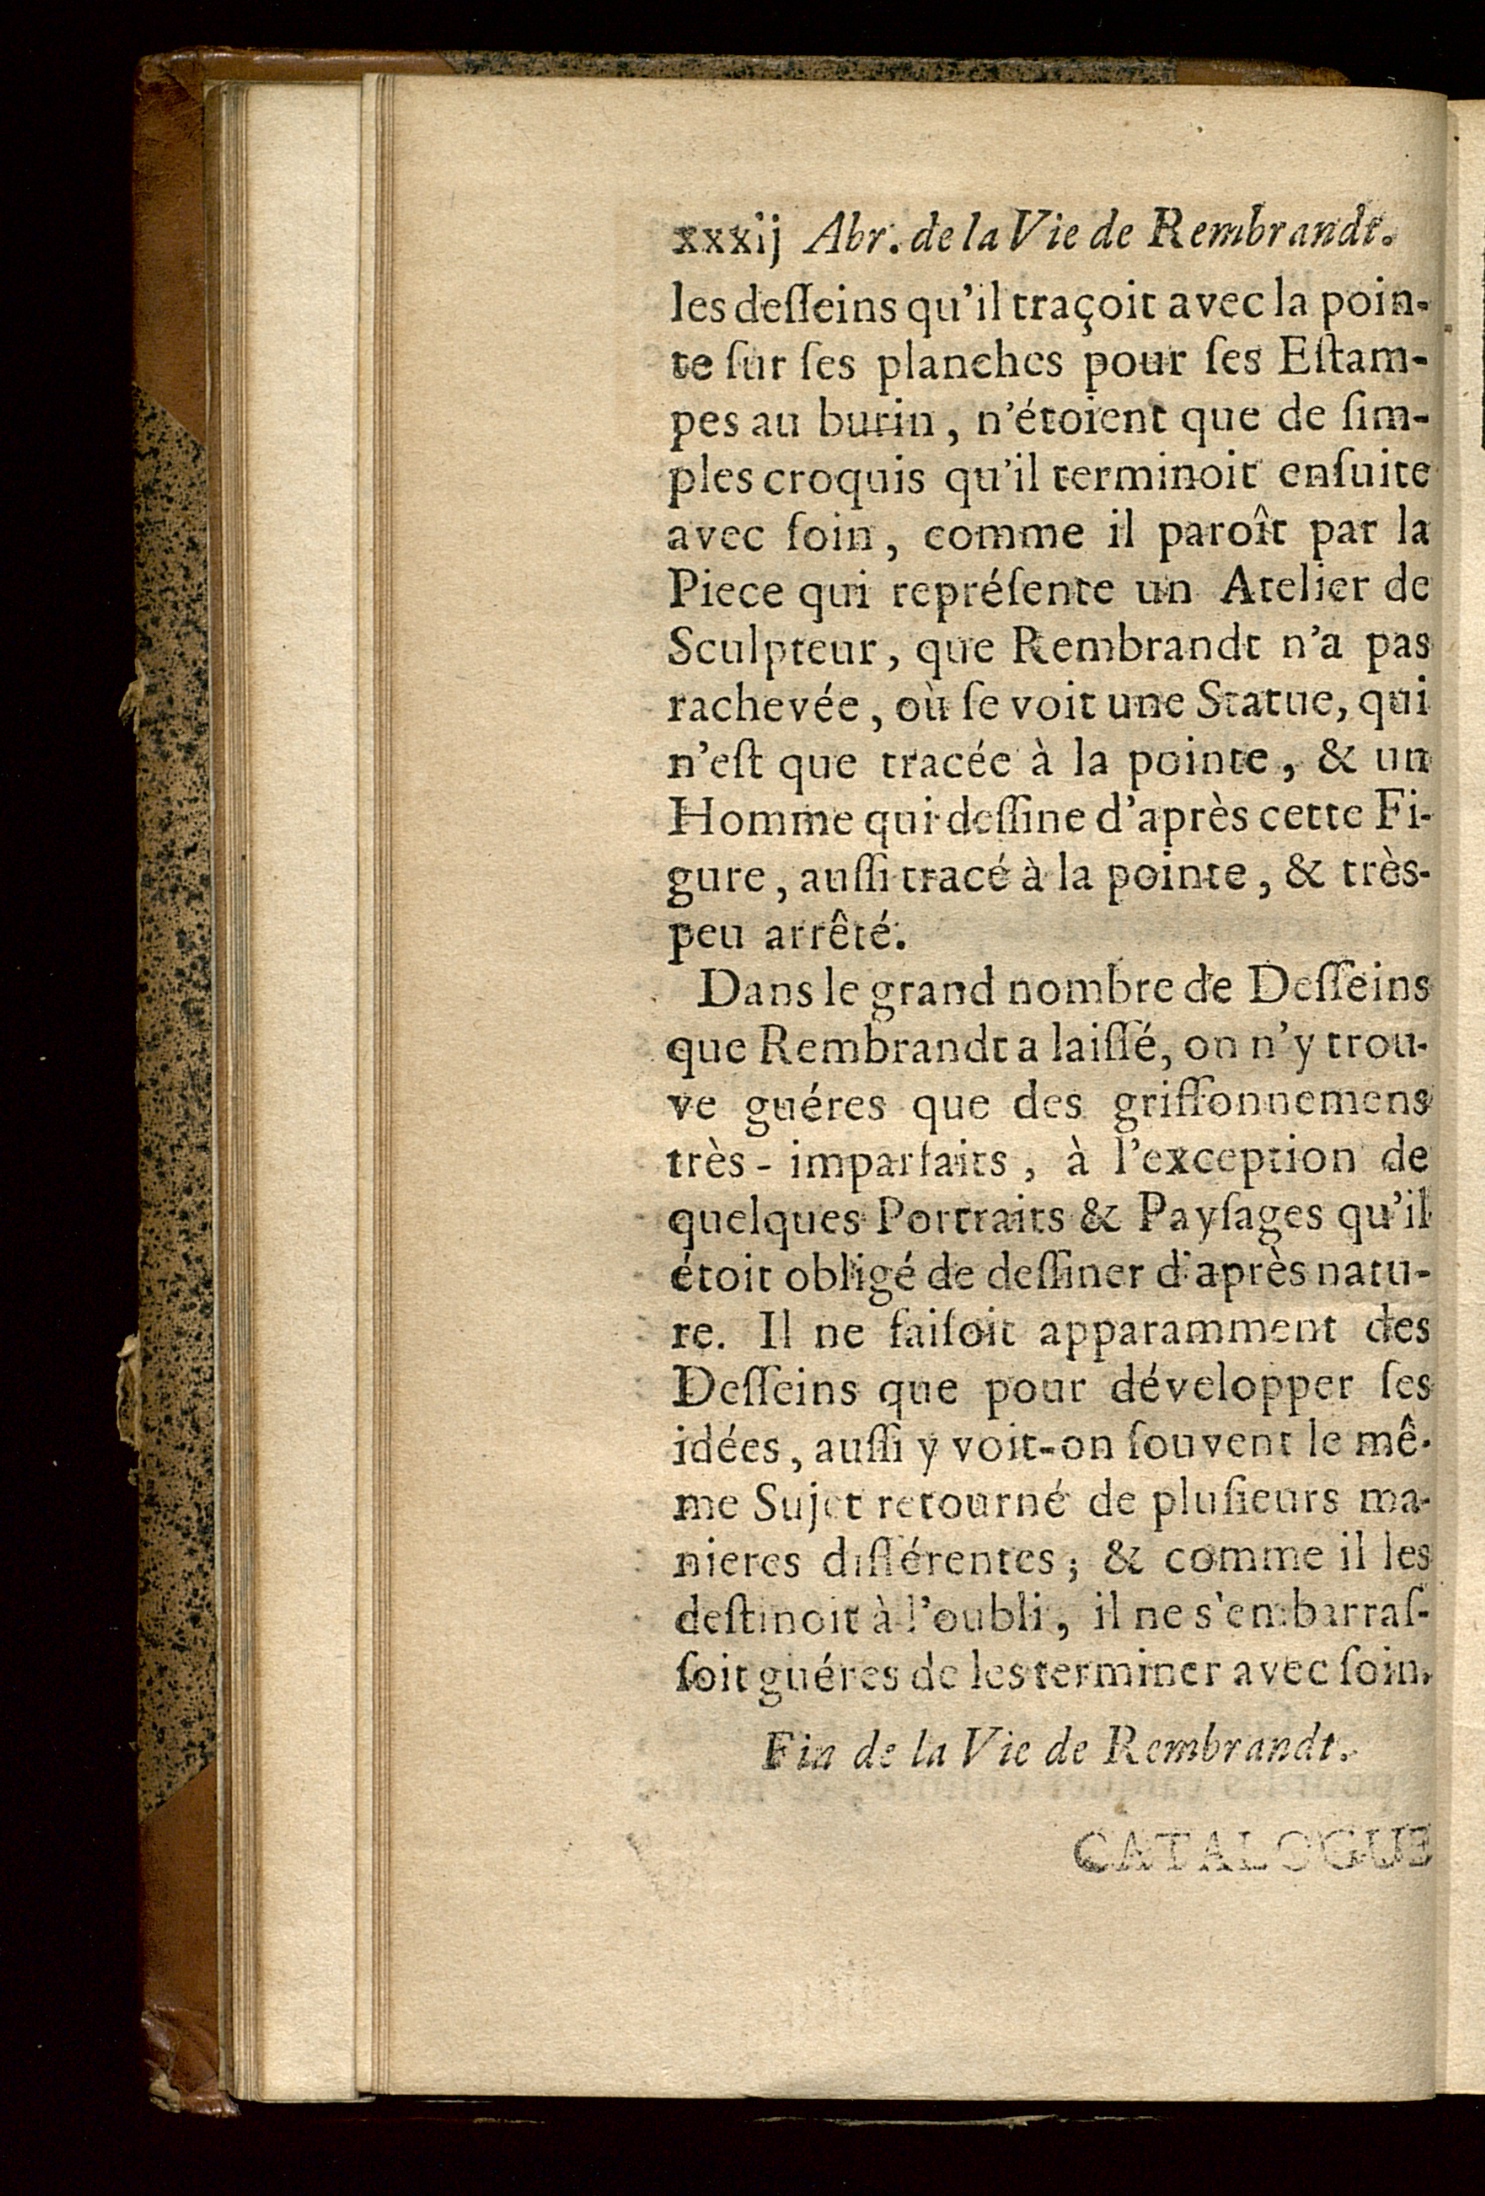 xxxij Abr. de la Vie de Rembrandt.
les deſſeins qu'il traçoit avec la poin-
te ſur ſes planches pour ſes Eſtam-
pes au burin, n'étoient que de ſim-
ples croquis qu'il terminoit enſuite
avec ſoin, comme il paroît par la
Piece qui repréſente un Atelier de
Sculpteur, que Rembrandt n'a pas
rachevée, où ſe voit une Statue, qui
n'eſt que tracée à la pointe, & un
Homme qui deſſine d'après cette Fi-
gure, auſſi tracé à la pointe, & très-
peu arrêté.
Dans le grand nombre de Deſſeins
que Rembrandt a laiſſé, on n'y trou-
ve guéres que des griffonnemens
très-imparfaits, à l'exception de
quelques Portraits & Payſages qu'il
étoit obligé de deſſiner d'après natu-
re. Il ne faiſoit apparamment des
Deſſeins que pour développer ſes
idées, auſſi y voit-on ſouvent le mê-
me Sujet retourné de pluſieurs ma-
nieres différentes; & comme il les
deſtinoit à l'oubli, il ne s'embarraſ-
ſoit guéres de les terminer avec ſoin.
Fin de la Vie de Rembrandt.
CATALOGUE